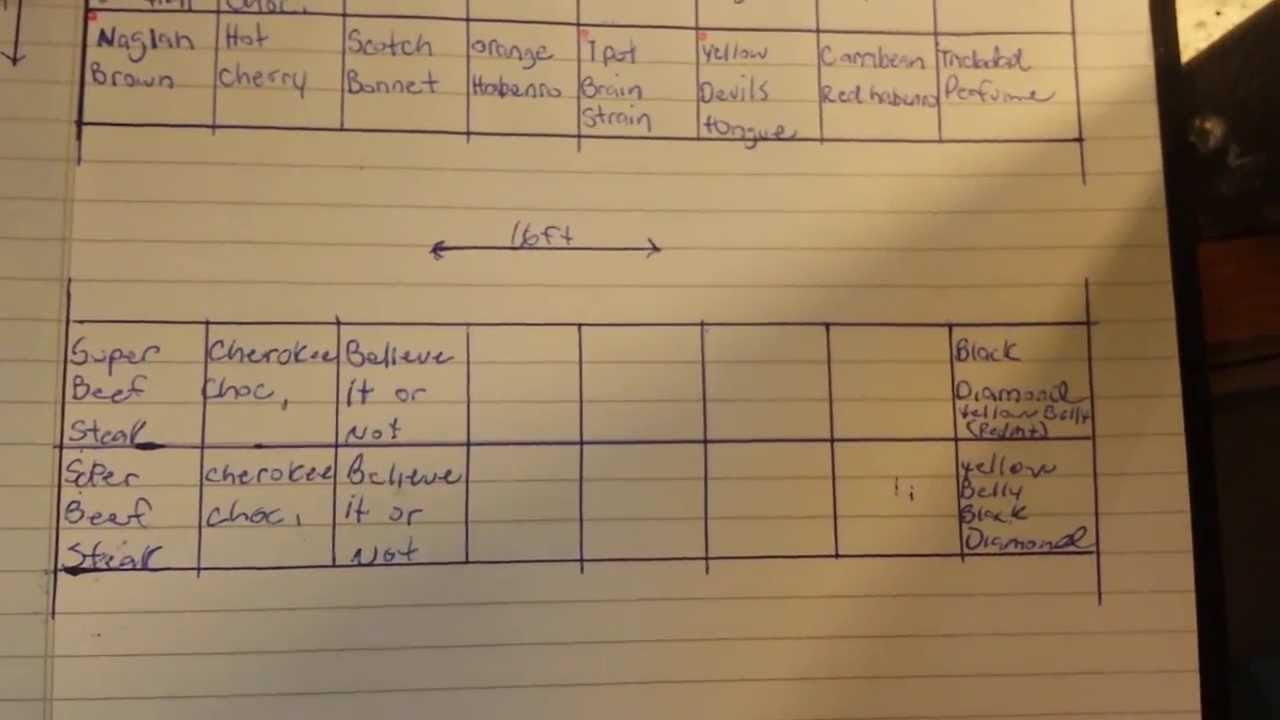 Choc.
Naglah Hot Scotch orange 7 pot yellow Carribean Trinidad
Brown Cherry Bonnet Habenro Brain Devils Red habenro Perfume
Strain tongue
16ft
Super Cherokee Believe Black
Beef Choc, it or Diamond
Steak Not Yellow Belly
(Red Mt)
Super cherokee Believe yellow
Beef choc, it or Belly
Steak Not Black
Diamond